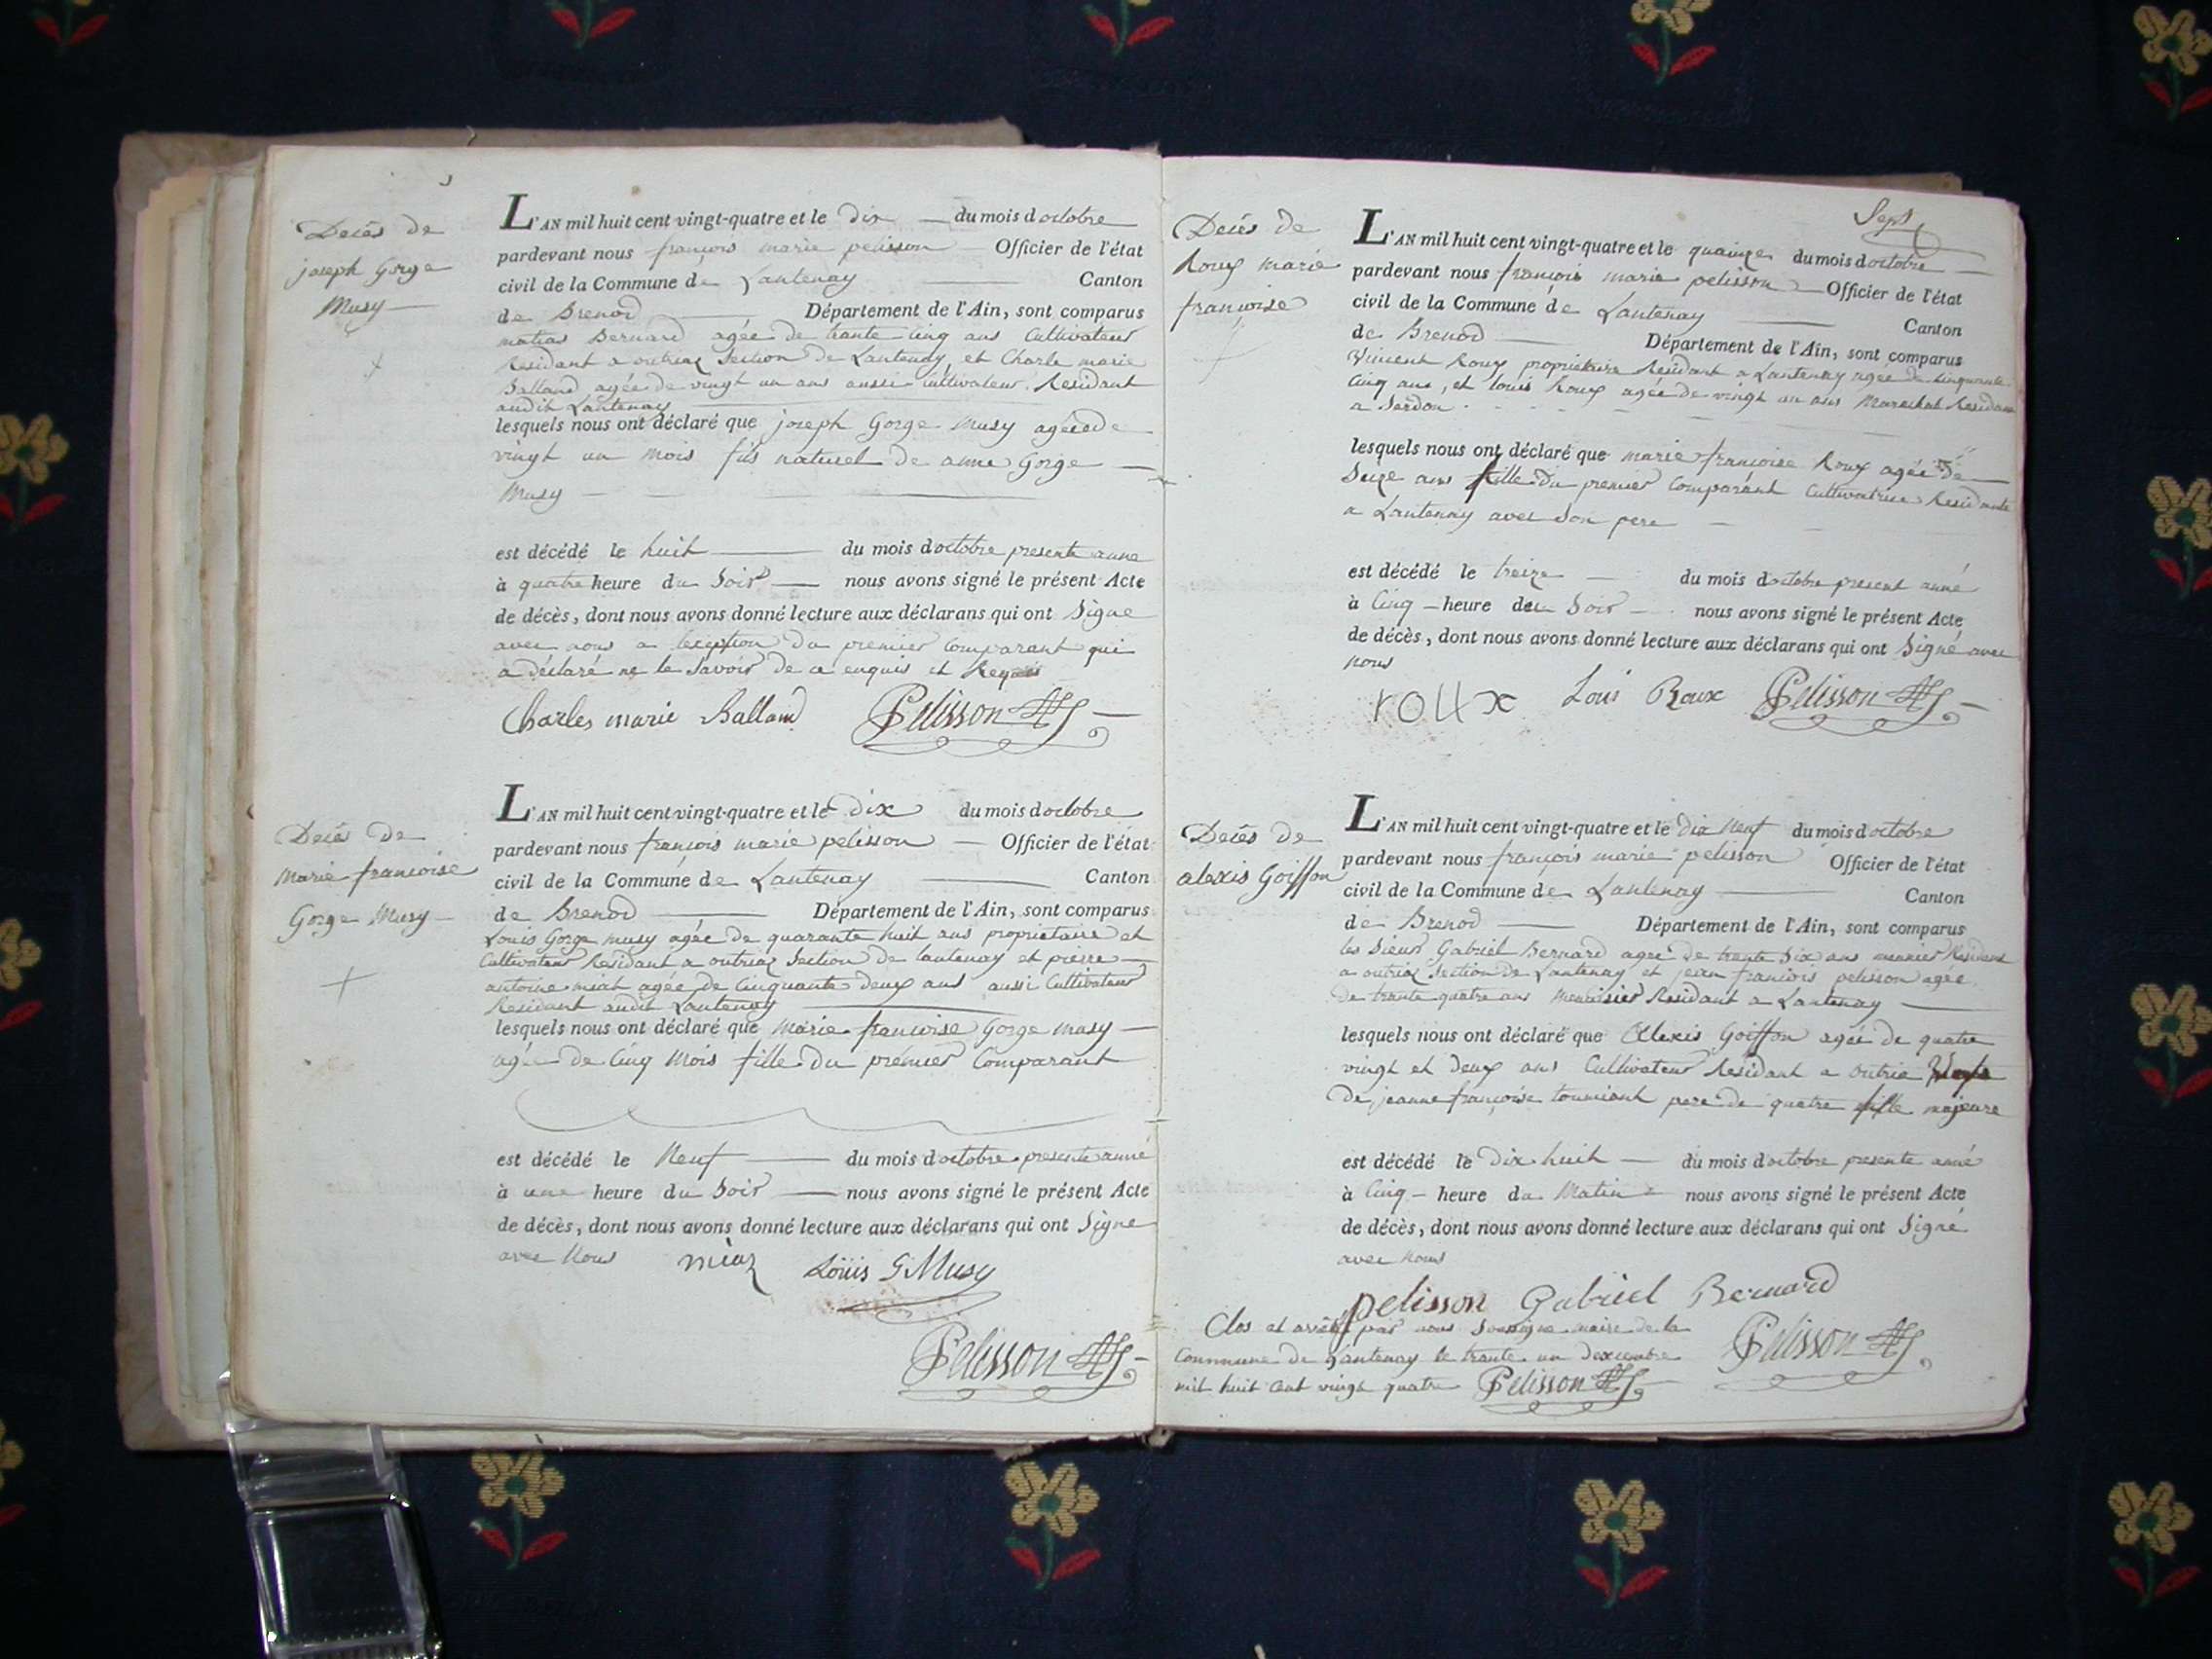 Decès de
joseph Gorge
Musy
L'AN mil huit cent vingt-quatre et le dix du mois doctobre
pardevant nous françois marie pelisson Officier de l'état
civil de la Commune de Lantenay Canton
de Brenod Département de l'Ain, sont comparus
matias Bernard agée de trante cinq ans Cultivateur
Residant a outriaz Section de Lantenay et Charle marie
Balland agée de vingt un ans aussi Cultivateur Residant
audit Lantenay
lesquels nous ont déclaré que joseph Gorge Musy agée de
vingt un mois fils naturel de anne Gorge
Musy
est décédé le huit du mois doctobre presente anne
à quatre heure du Soir nous avons signé le présent Acte
de décès, dont nous avons donné lecture aux déclarans qui ont Signe
avec nous a lexeption du premier Comparant qui
a déclaré ne le Savoir de ce enquis et Requis
Charles marie Balland Pelisson
Decès de
Marie francoise
Gorge Musy
L'AN mil huit cent vingt-quatre et le dix du mois doctobre
pardevant nous françois marie pelisson Officier de l'état
civil de la Commune de Lantenay Canton
de Brenod Département de l'Ain, sont comparus
Louis Gorge musy agée de quarante huit ans propriétaire et
Cultivateur Residant a outriaz Section de lantenay et pierre
antoine miat agée de Cinquante deux ans aussi Cultivateur
Residant audit Lantenay
lesquels nous ont déclaré que Marie francoise Gorge musy
agée de Cinq Mois fille du premier Comparant
est décédé le Neuf du mois doctobre presente anné
à une heure du Soir nous avons signé le présent Acte
de décès, dont nous avons donné lecture aux déclarans qui ont Signe
avec Nous miaz Loüis G Musy
Pelisson
Sept
Decés de
Roux marie
francoise
L'AN mil huit cent vingt-quatre et le quainze du mois doctobre
pardevant nous françois marie pelisson Officier de l'état
civil de la Commune de Lantenay Canton
de Brenod Département de l'Ain, sont comparus
Vincent Roux propriétaire Residant a Lantenay agée de Cinquante
Cinq ans, et louis Roux agée de vingt un ans Marechal Residant
a Serdon
lesquels nous ont déclaré que marie françoise Roux agée de
Seize ans fille du premier Comparant Cultivatrice Residante
a Lantenay avec Son pere
est décédé le treize du mois doctobre present anné
à Cinq heure du Soir nous avons signé le présent Acte
de décès, dont nous avons donné lecture aux déclarans qui ont Signé avec
nous
roux Loui Roux Pelisson
Decès de
alexis Goiffon
L'AN mil huit cent vingt-quatre et le dix Neuf du mois doctobre
pardevant nous françois marie pelisson Officier de l'état
civil de la Commune de Lantenay Canton
de Brenod Département de l'Ain, sont comparus
les Sieur Gabriel Bernard agée de trante Six ans meunier Residant
a outriaz Section de Lantenay et jean francois pelisson agée
de trante quatre ans Menuisier Residant a Lantenay
lesquels nous ont déclaré que Alexis Goiffon agée de quatre
vingt et deux ans Cultivateur Residant a Outria
de jeanne françoise pere de quatre fille majeure
est décédé le dix huit du mois doctobre presente anné
à Cinq heure du Matin nous avons signé le présent Acte
de décès, dont nous avons donné lecture aux déclarans qui ont Signé
avec nous
pelisson Gabriel Bernard
Pelisson
Clos et arrêté par nous Soussigne maire de la
Commune de Lantenay le trante un dexcembre
mil huit cent vingt quatre Pelisson